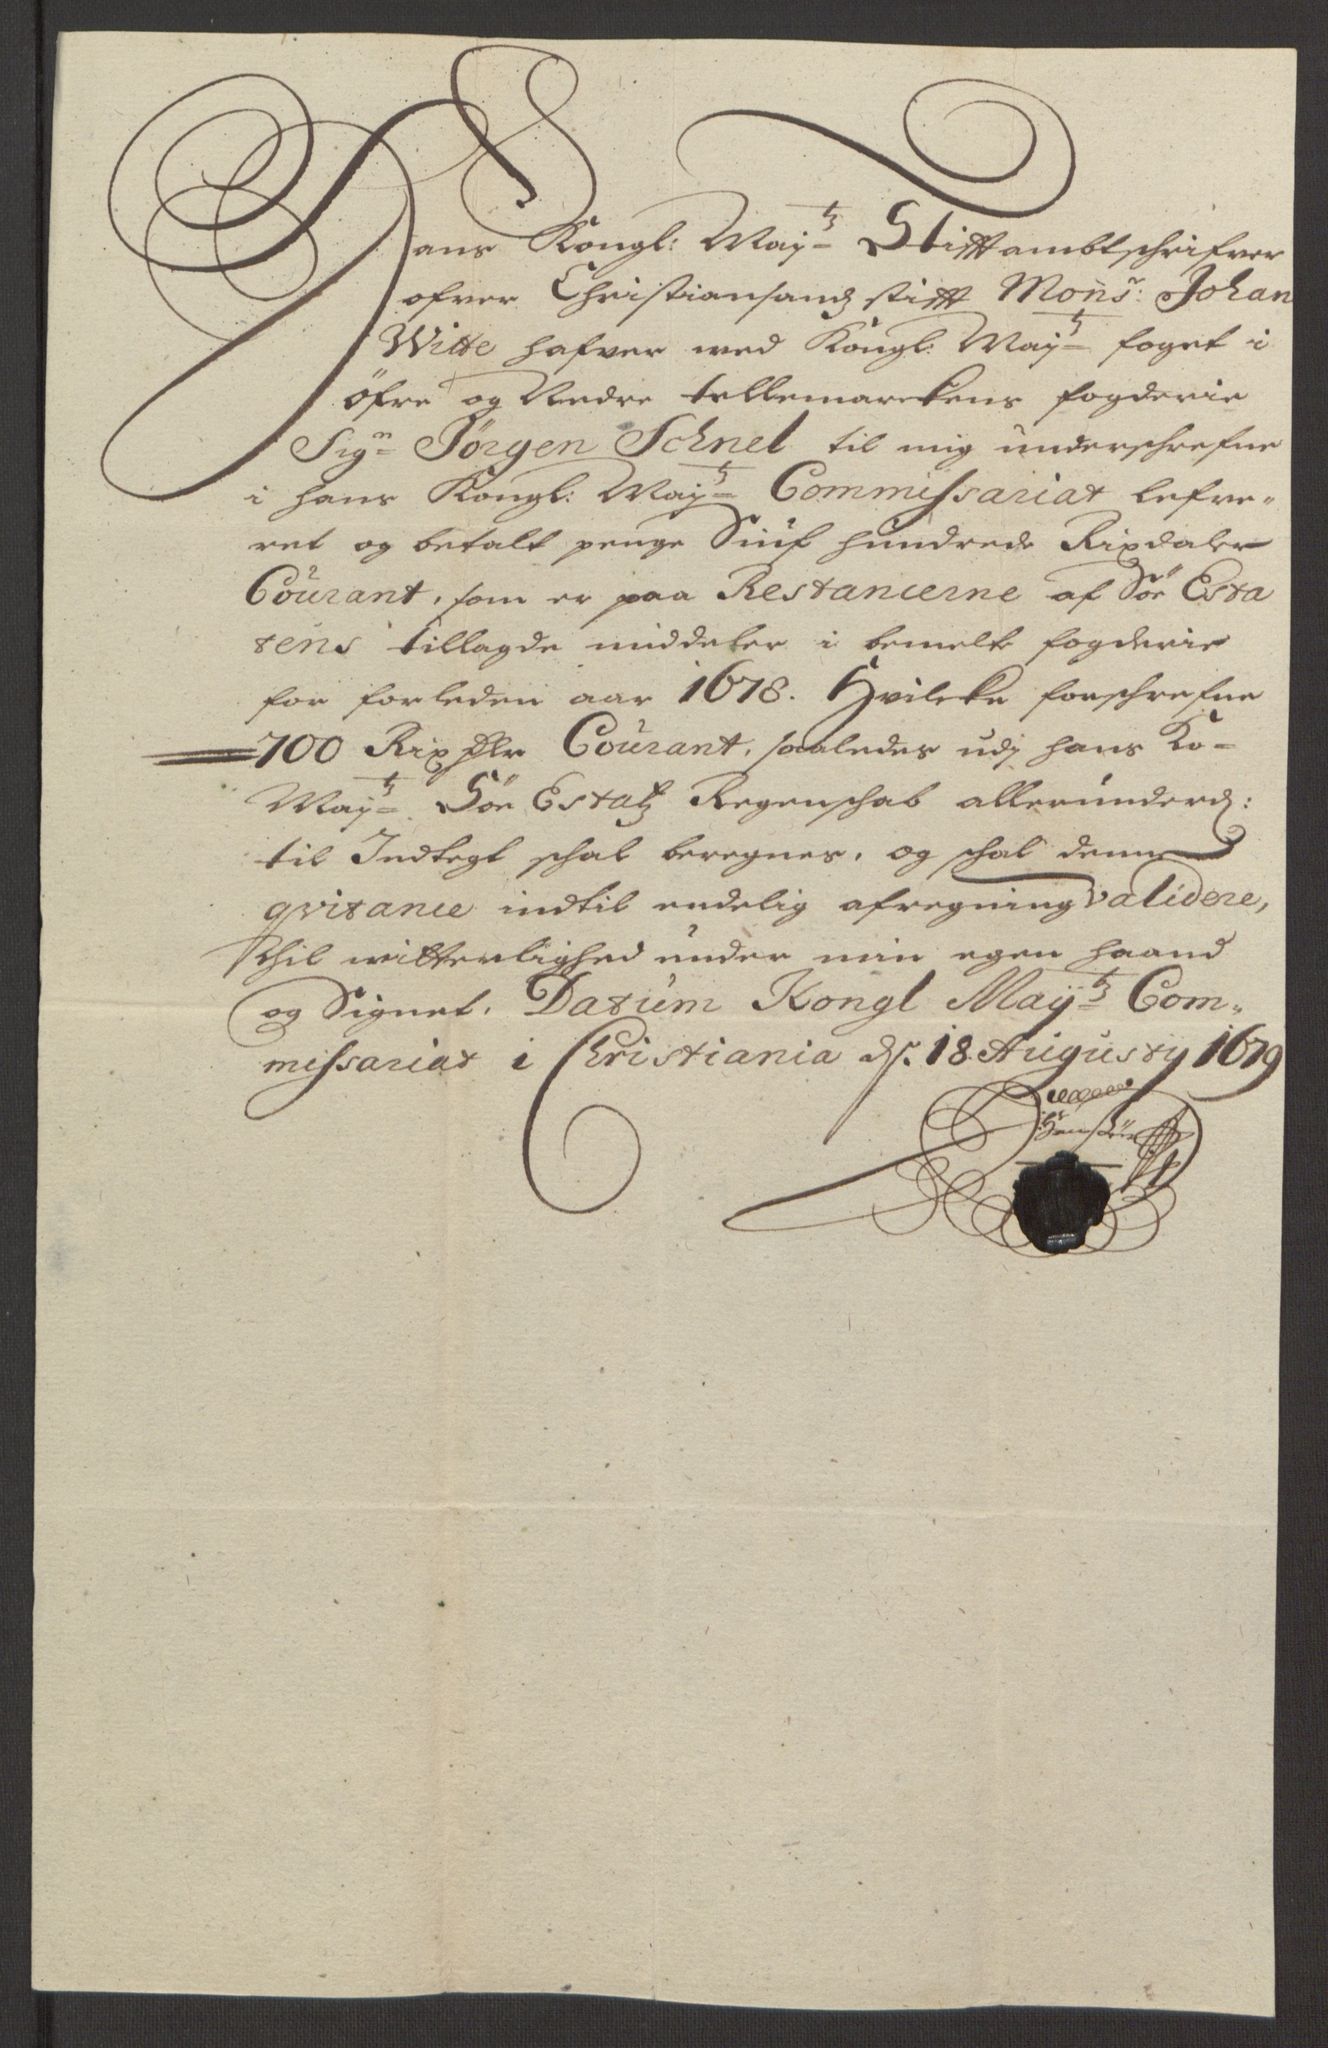 Hans Kongl: Maytz Stifftambtschrifver
ofver Christiansandz stifft Monsr: Johan
Witte hafver med Kongl: Maytz foget i
öfre og Nedre tellemarckens fogderie
Sigr Jörgen Schnel til mig underschrefne
i hans Kongl: Maytz Commissariat lefve-
ret og betalt penge Siuf hundrede Rixdaler
Courant, som er paa Restancerne af Söe Esta
tens tillagde middeler i bemelte fogderie
for forleden aar 1678. Hvilcke forschrefne
700 Rixdlr Courant, saaledes udj hans Ko-
Maytz Söe Estatz Regenschab allerunderd:
til Indtegt schal beregnes, og schal denne
qvitance indtil endelig afregning validere,
Thil witterlighed under min egen haand
og Signet. Datum Kongl Maytz Com-
missariat i Christiania ds. 18 Augusty 1679